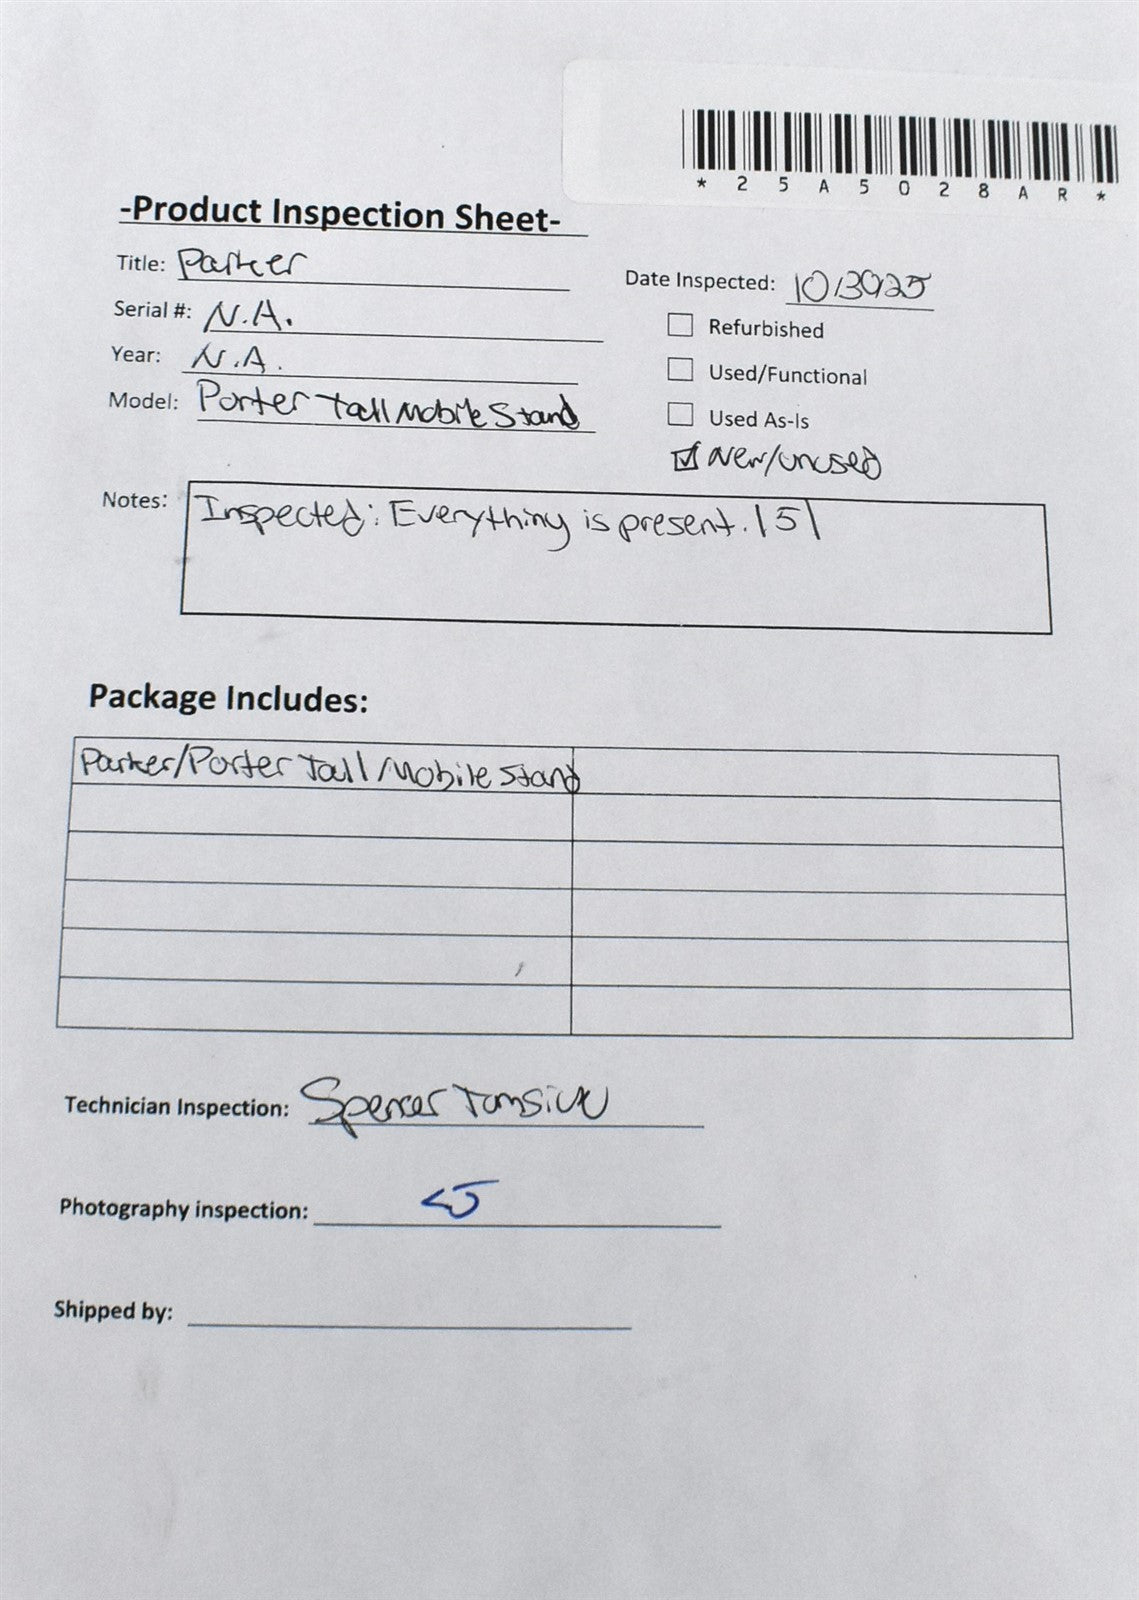 *25A5028AR*
-Product Inspection Sheet-
Title: Parker
Date Inspected: 
Serial #: N.A.
Refurbished
Year: N.A.
Used/Functional
Model: Porter Tall Mobile Stand
Used As-Is
New/unused
Notes: Inspected: Everything is present. |5|
Package Includes:
Parker/Porter Tall Mobile Stand
Technician Inspection: Spencer
Photography inspection:
Shipped by: